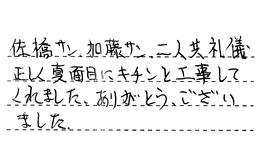 佐橋サン、加藤サン、二人共礼儀
正しく真面目にキチンと工事して
くれました、ありがとう、ござい
ました、